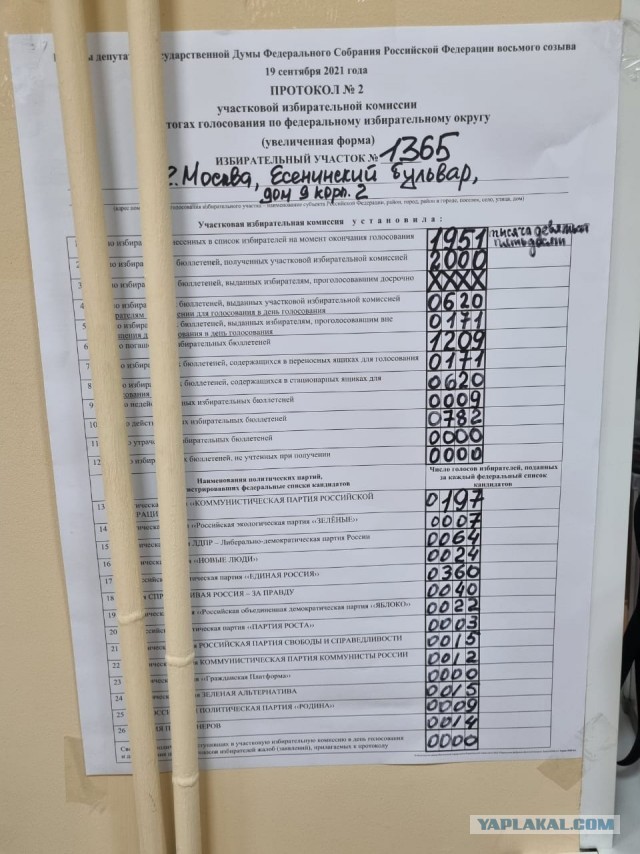 ы депута Государственной Думы Федерального Собрания Российской Федерации восьмого созыва
19 сентября 2021 года
ПРОТОКОЛ № 2
участковой избирательной комиссии
тогах голосования по федеральному избирательному округу
(увеличенная форма)
ИЗБИРАТЕЛЬНЫЙ УЧАСТОК № 1365
г. Москва, Есенинский бульвар,
дом 9 корп. 2
Участковая избирательная комиссия установила:
1 о избир несенных в список избирателей на момент окончания голосования 1951 тысяча девятьсот пятьдесят
2 бюллетеней, полученных участковой избирательной комиссией 2000
3 о избир бюллетеней, выданных избирателям, проголосовавшим досрочно XXXX
4 о избир бюллетеней, выданных участковой избирательной комиссией
ирателям ении для голосования в день голосования 0620
5 бюллетеней, выданных избирателям, проголосовавшим вне
щения для голосования в день голосования 0171
6 о погаш збирательных бюллетеней 1209
7 о избир бюллетеней, содержащихся в переносных ящиках для голосования 0171
8 о избира бюллетеней, содержащихся в стационарных ящиках для 0620
9 о недей ных избирательных бюллетеней 0009
10 о дейст ых избирательных бюллетеней 0782
11 о утрач бирательных бюллетеней 0000
12 о избир бюллетеней, не учтенных при получении 0000
Наименования политических партий,
истрировавших федеральные списки кандидатов
Число голосов избирателей, поданных
за каждый федеральный список
кандидатов
13 ическая «КОММУНИСТИЧЕСКАЯ ПАРТИЯ РОССИЙСКОЙ
РАЦИ 0197
14 ческая «Российская экологическая партия "ЗЕЛЁНЫЕ" 0007
15 ическа ЛДПР – Либерально-демократическая партия России 0064
16 ическая «НОВЫЕ ЛЮДИ» 0024
17 ссийск тическая партия «ЕДИНАЯ РОССИЯ» 0360
18 я СПР ИВАЯ РОССИЯ – ЗА ПРАВДУ 0040
19 ическа «Российская объединенная демократическая партия «ЯБЛОКО» 0022
20 ссийск тическая партия «ПАРТИЯ РОСТА» 0003
21 РОССИЙСКАЯ ПАРТИЯ СВОБОДЫ И СПРАВЕДЛИВОСТИ 0015
22 ическая КОММУНИСТИЧЕСКАЯ ПАРТИЯ КОММУНИСТЫ РОССИИ 0012
23 ическая «Гражданская Платформа» 0000
24 ическая ЗЕЛЕНАЯ АЛЬТЕРНАТИВА 0015
25 ОССС ПОЛИТИЧЕСКАЯ ПАРТИЯ «РОДИНА» 0009
26 ИЯ П НЕРОВ 0014
Све оступивших в участковую избирательную комиссию в день голосования
и д лосов избирателей жалоб (заявлений), прилагаемых к протоколу 0000
YAPLAKAL.COM